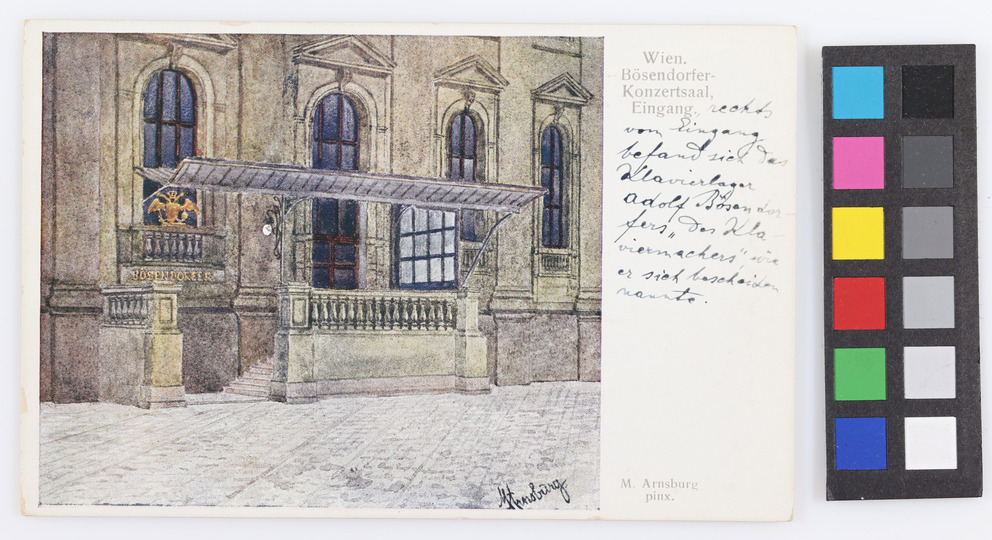 BÖSENDORFER
Wien.
Bösendorfer-
Konzertsaal,
Eingang, rechts
vom Eingang
befand sich das
Klavierlager
Adolf Bösendor-
fers, „des Kla-
viermachers" wie
er sich bescheiden
nannte.
MArnsburg
M. Arnsburg
pinx.